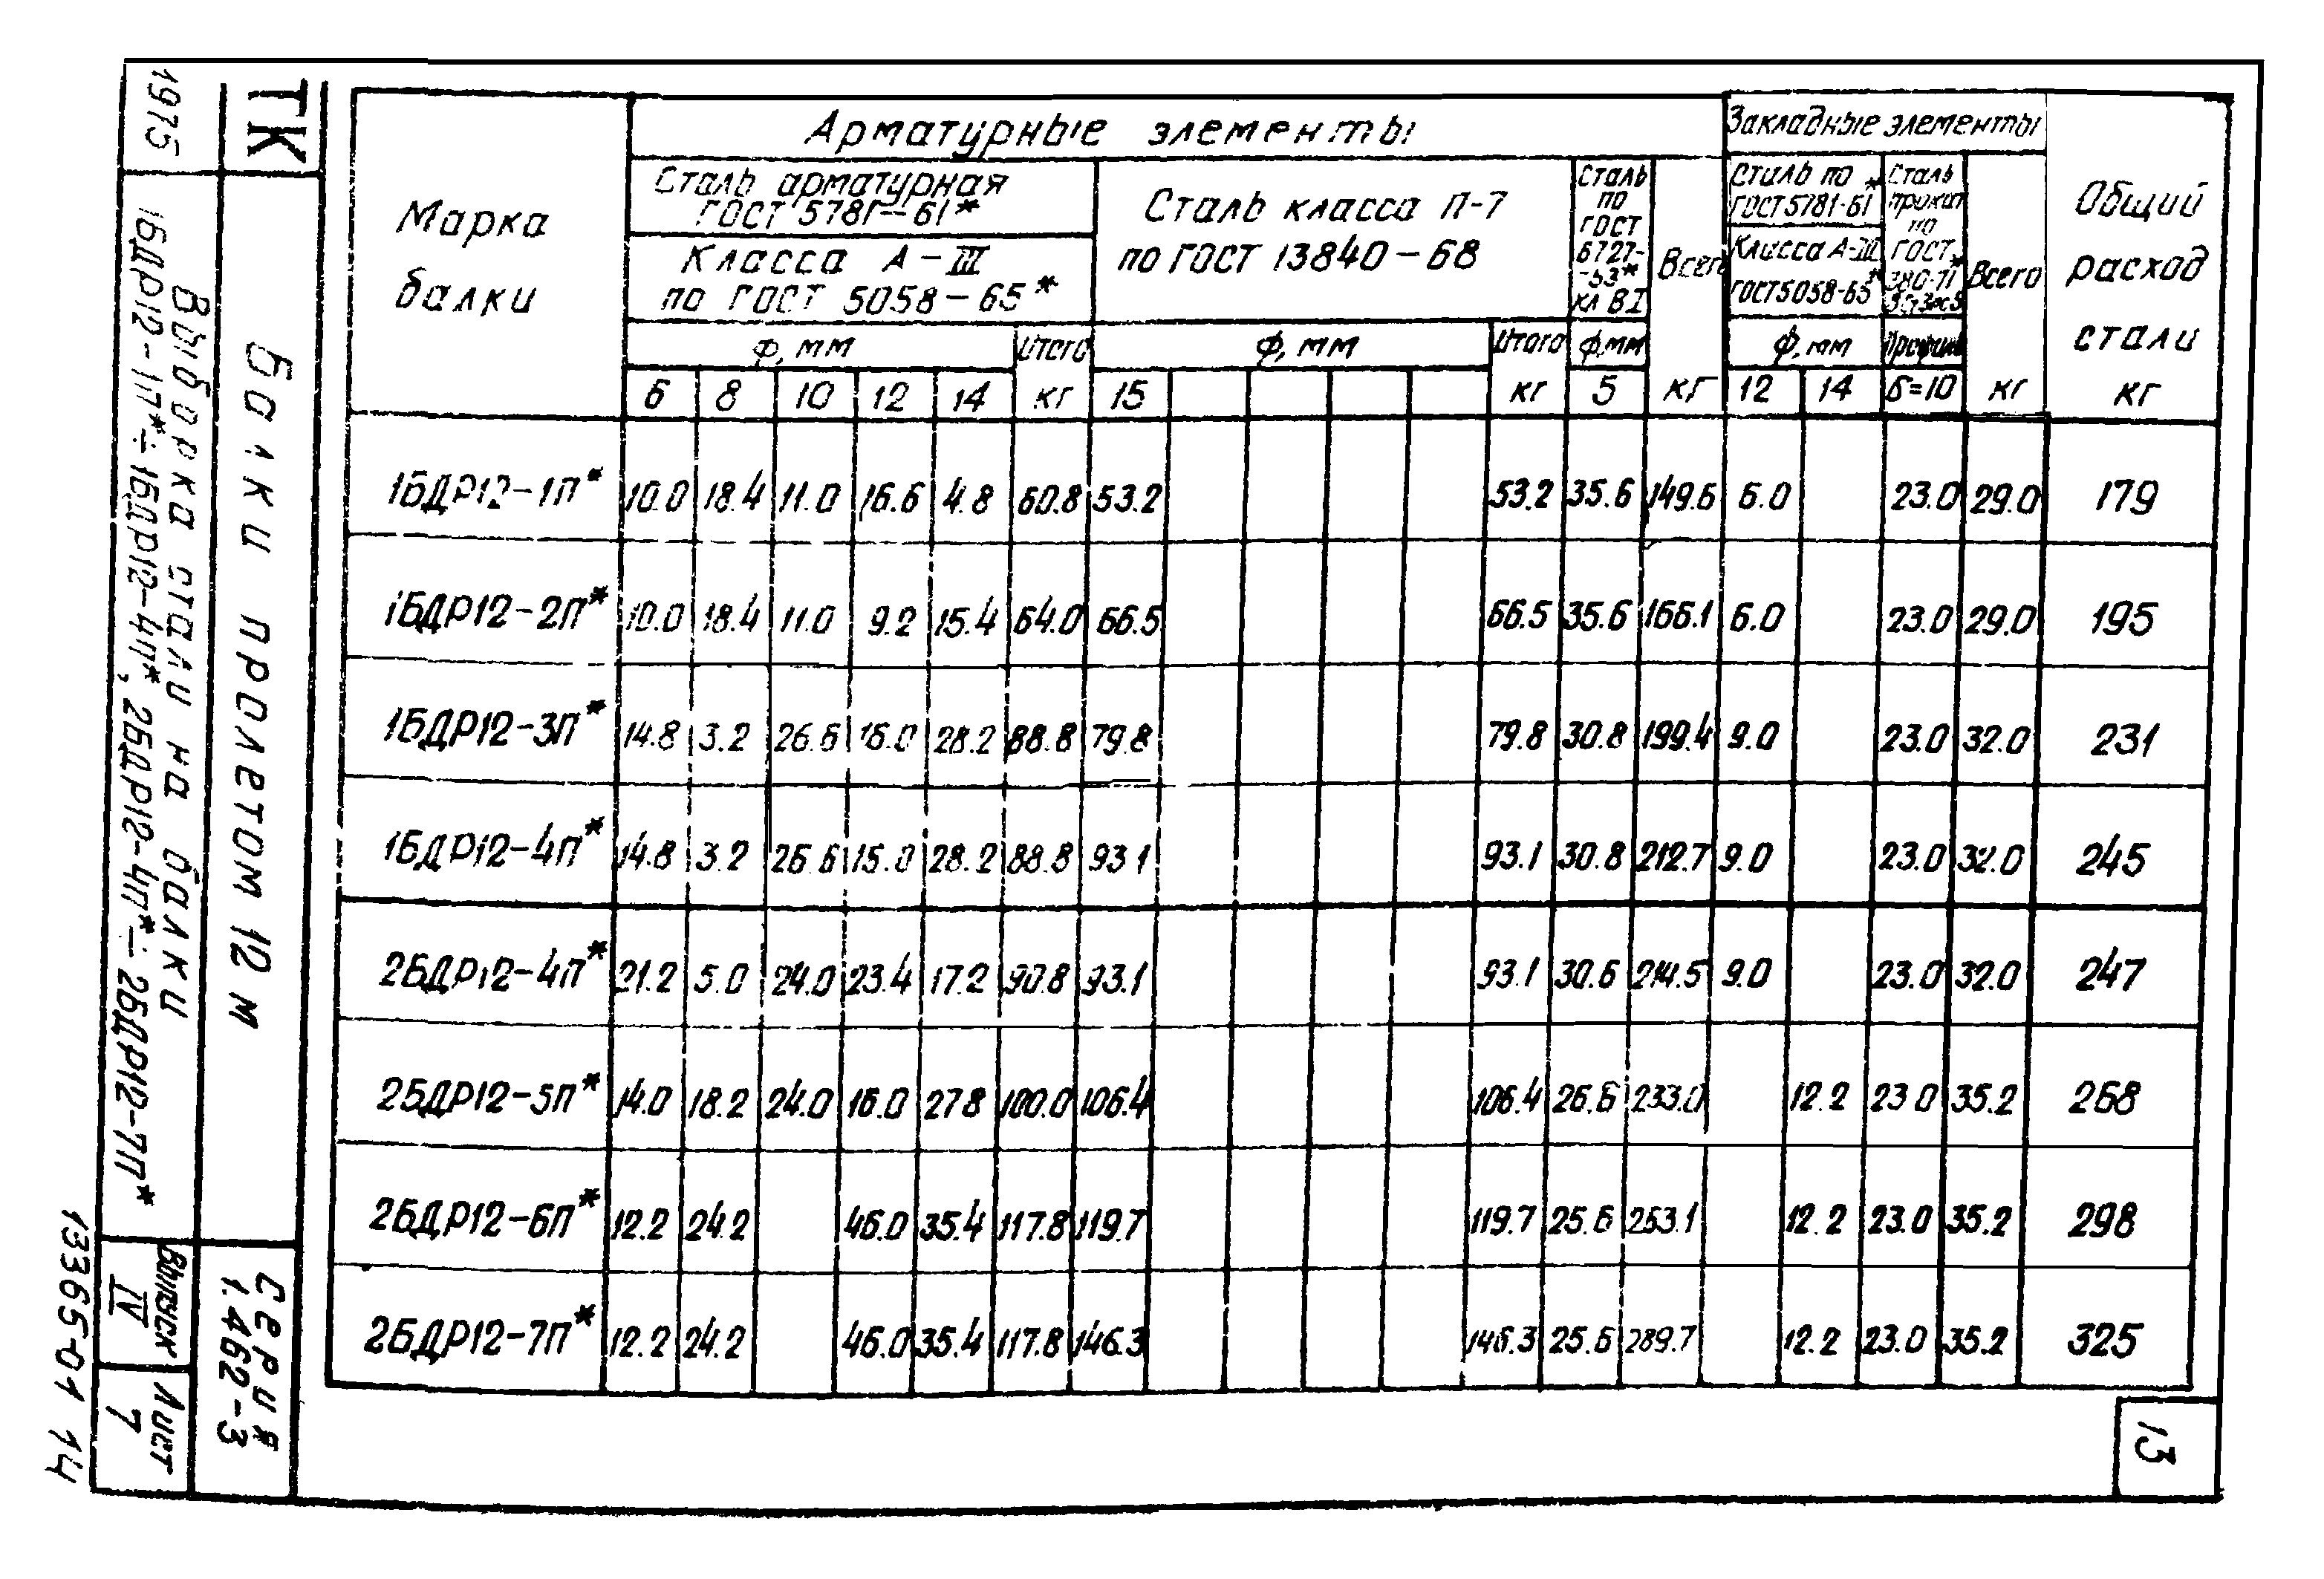 Арматурные элементы
Закладные элементы
Марка балки
Сталь арматурная ГОСТ 5781-61*
Класса А-III по ГОСТ 5058-65*
Сталь класса П-7 по ГОСТ 13840-68
Сталь по ГОСТ 6727-53* кл ВI
Всего
Сталь по ГОСТ 5781-61*
Класса А-III ГОСТ 5058-65*
Сталь прокат по ГОСТ 380-71*
Всего
Общий расход стали кг
ф, мм Итого ф, мм Итого ф,мм ф, мм Профиль
6 8 10 12 14 кг 15 кг 5 кг 12 14 δ=10 кг
1БДР12-1П* 10.0 18.4 11.0 16.6 4.8 60.8 53.2 53.2 35.6 149.6 6.0 23.0 29.0 179
1БДР12-2П* 10.0 18.4 11.0 9.2 15.4 64.0 66.5 66.5 35.6 166.1 6.0 23.0 29.0 195
1БДР12-3П* 14.8 3.2 26.6 16.0 28.2 88.8 79.8 79.8 30.8 199.4 9.0 23.0 32.0 231
1БДР12-4П* 14.8 3.2 26.6 15.0 28.2 88.8 93.1 93.1 30.8 212.7 9.0 23.0 32.0 245
2БДР12-4П* 21.2 5.0 24.0 23.4 17.2 90.8 93.1 93.1 30.6 214.5 9.0 23.0 32.0 247
2БДР12-5П* 14.0 18.2 24.0 16.0 27.8 100.0 106.4 106.4 26.6 233.0 12.2 23.0 35.2 268
2БДР12-6П* 12.2 24.2 46.0 35.4 117.8 119.7 119.7 25.6 263.1 12.2 23.0 35.2 298
2БДР12-7П* 12.2 24.2 46.0 35.4 117.8 146.3 146.3 25.6 289.7 12.2 23.0 35.2 325
13
ТК
1975
Балки пролетом 12 м
Выборка стали на балки
1БДР12-1П*÷1БДР12-4П*, 2БДР12-4П*÷2БДР12-7П*
Серия
1.462-3
Выпуск
IV
Лист
7
13365-01 14